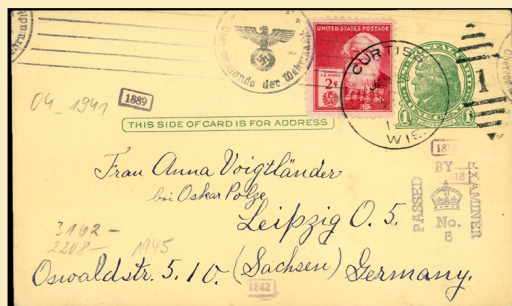 UNITED STATES POSTAGE
2¢
CURTISS
WIS
1
1
Oberkommando der Wehrmacht
04_1941
1889
THIS SIDE OF CARD IS FOR ADDRESS
Frau Anna Voigtländer
bei Oskar Polze
Leipzig O. 5.
3162-
2208- 1945
Oswaldstr. 5. I0. (Sachsen) Germany.
PASSED
BY
EXAMINER
No.
8
1842